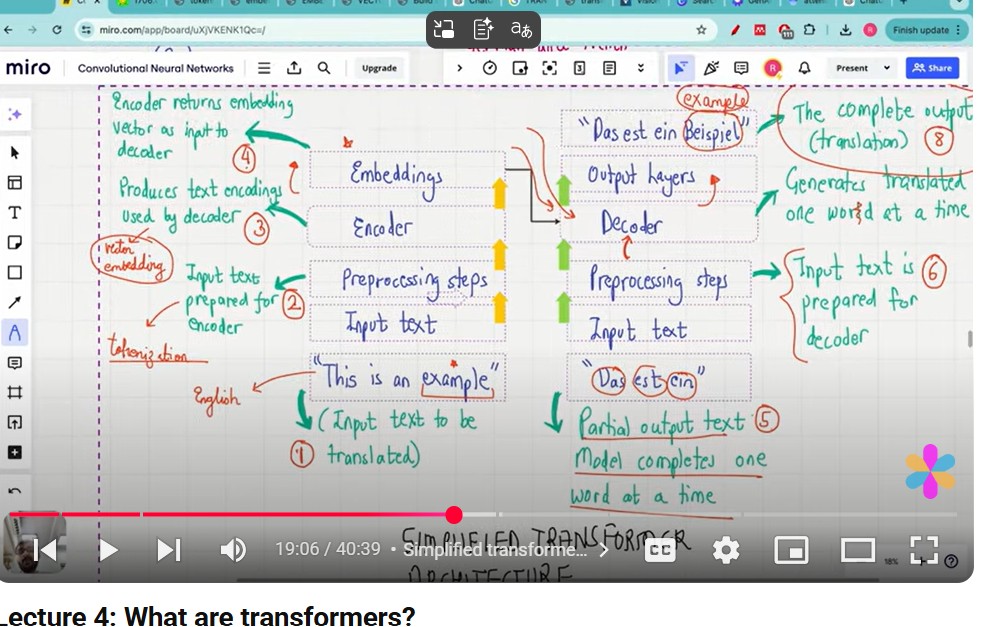 miro.com/app/board/uXjVKENK1Qc=/
Finish update
miro
Convolutional Neural Networks
Upgrade
Present
Share
Encoder returns embedding
vector as input to
decoder
4
Produces text encodings
used by decoder
3
vector
embedding
Input text
prepared for
encoder
2
tokenization
English
Embeddings
Encoder
Preprocessing steps
Input text
"This is an example"
(Input text to be
1 translated)
example
"Das est ein Beispiel"
Output layers
Decoder
Preprocessing steps
Input text
"Das est ein"
Partial output text 5
Model completes one
word at a time
The complete output
(translation) 8
Generates translated
one word at a time
Input text is 6
prepared for
decoder
SIMPLIFIED TRANSFORMER
ARCHITECTURE
18%
19:06 / 40:39 • Simplified transforme...
CC
Lecture 4: What are transformers?